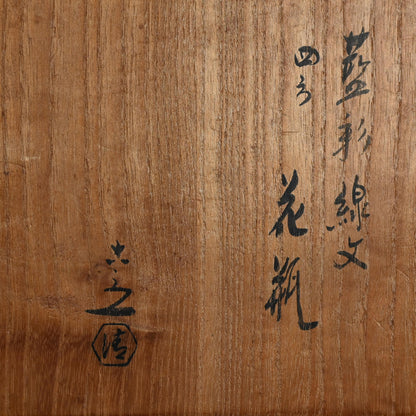 藍彩線文
四方
花瓶
吉之
清